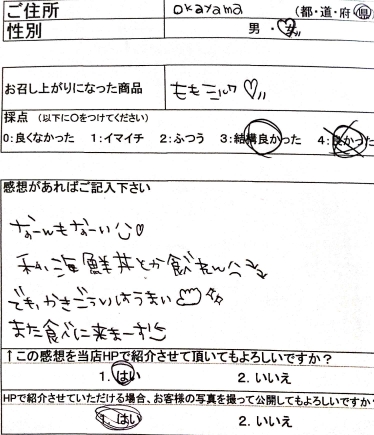 ご住所 okayama (都・道・府・県)
性別 男・女
お召し上がりになった商品 ももミルク♡〃
採点 (以下に○をつけてください)
0:良くなかった 1:イマイチ 2:ふつう 3:結構良かった 4:良かった
感想があればご記入下さい
なーんもなーい♡
私、海鮮丼とか食べれん
でも、かきごおりはうまい
また食べに来まーす
↑この感想を当店HPで紹介させて頂いてもよろしいですか?
1.はい 2.いいえ
HPで紹介させていただける場合、お客様の写真を撮って公開してもよろしいですか
1.はい 2.いいえ